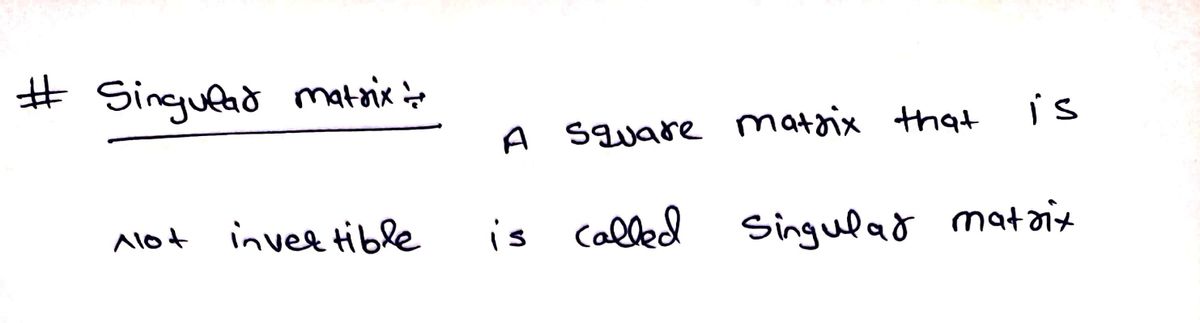 # Singular matrix :-
A square matrix that is
Not invertible is called Singular matrix